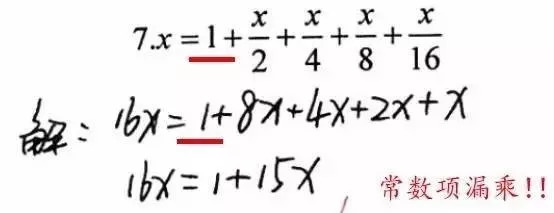 7.x = 1 + x/2 + x/4 + x/8 + x/16
解：16x = 1 + 8x + 4x + 2x + x
16x = 1 + 15x
常数项漏乘!!